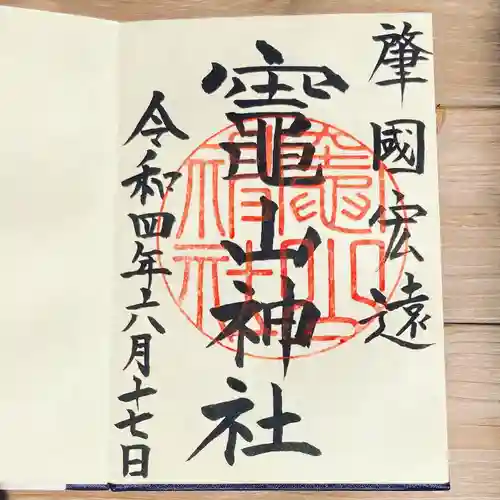 肇國宏遠
竈山神社
令和四年六月十七日
竈山神社